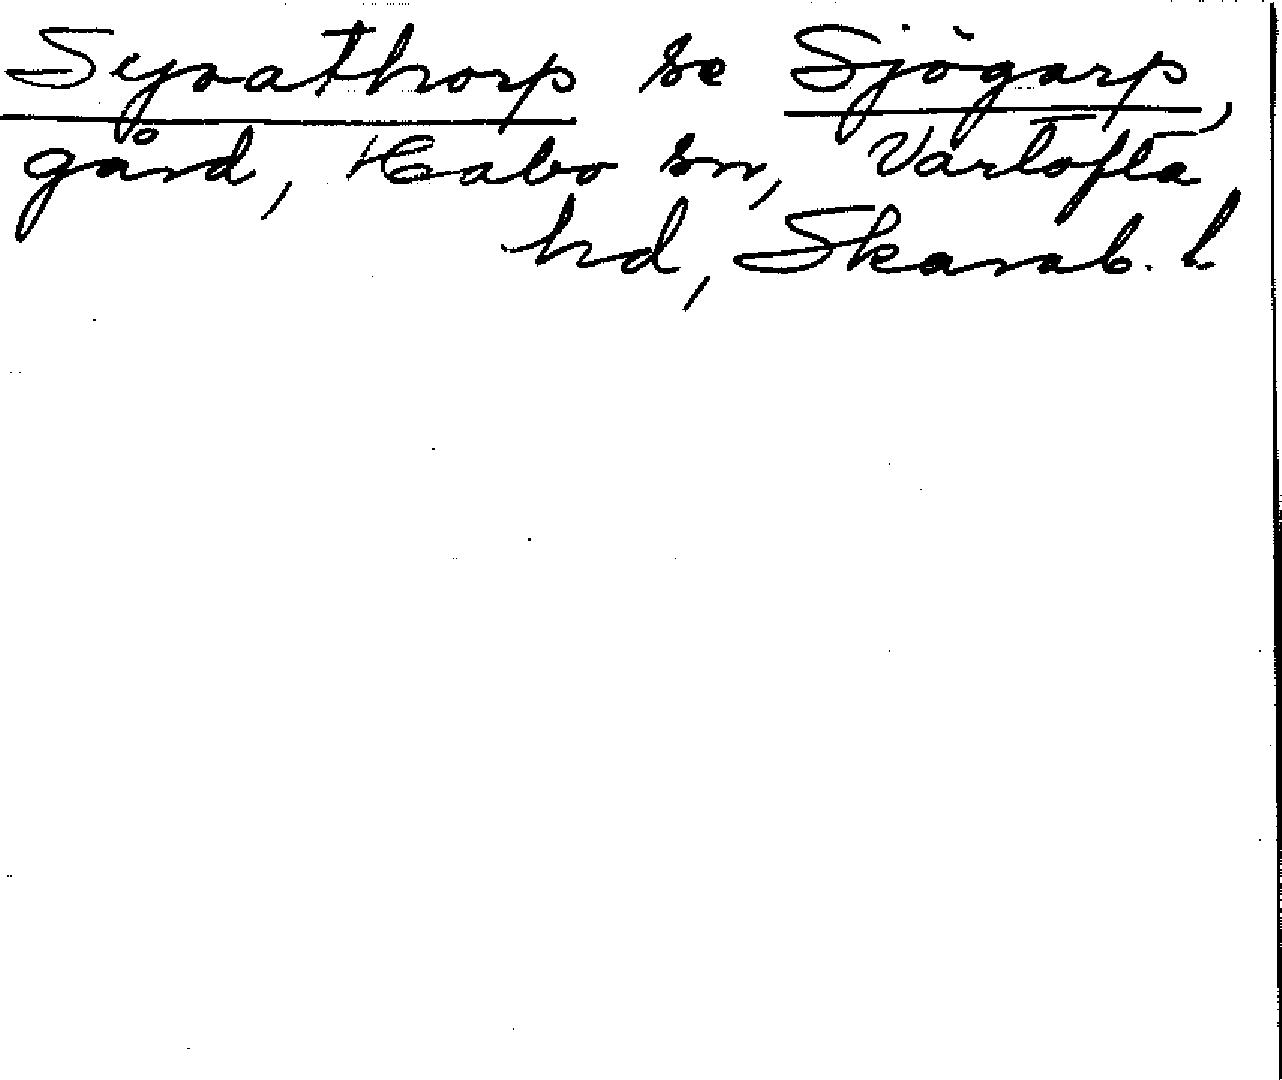 Syrathorp se Sjögarp,
gård, Habo sn, Vartofta
hd, Skarab. l